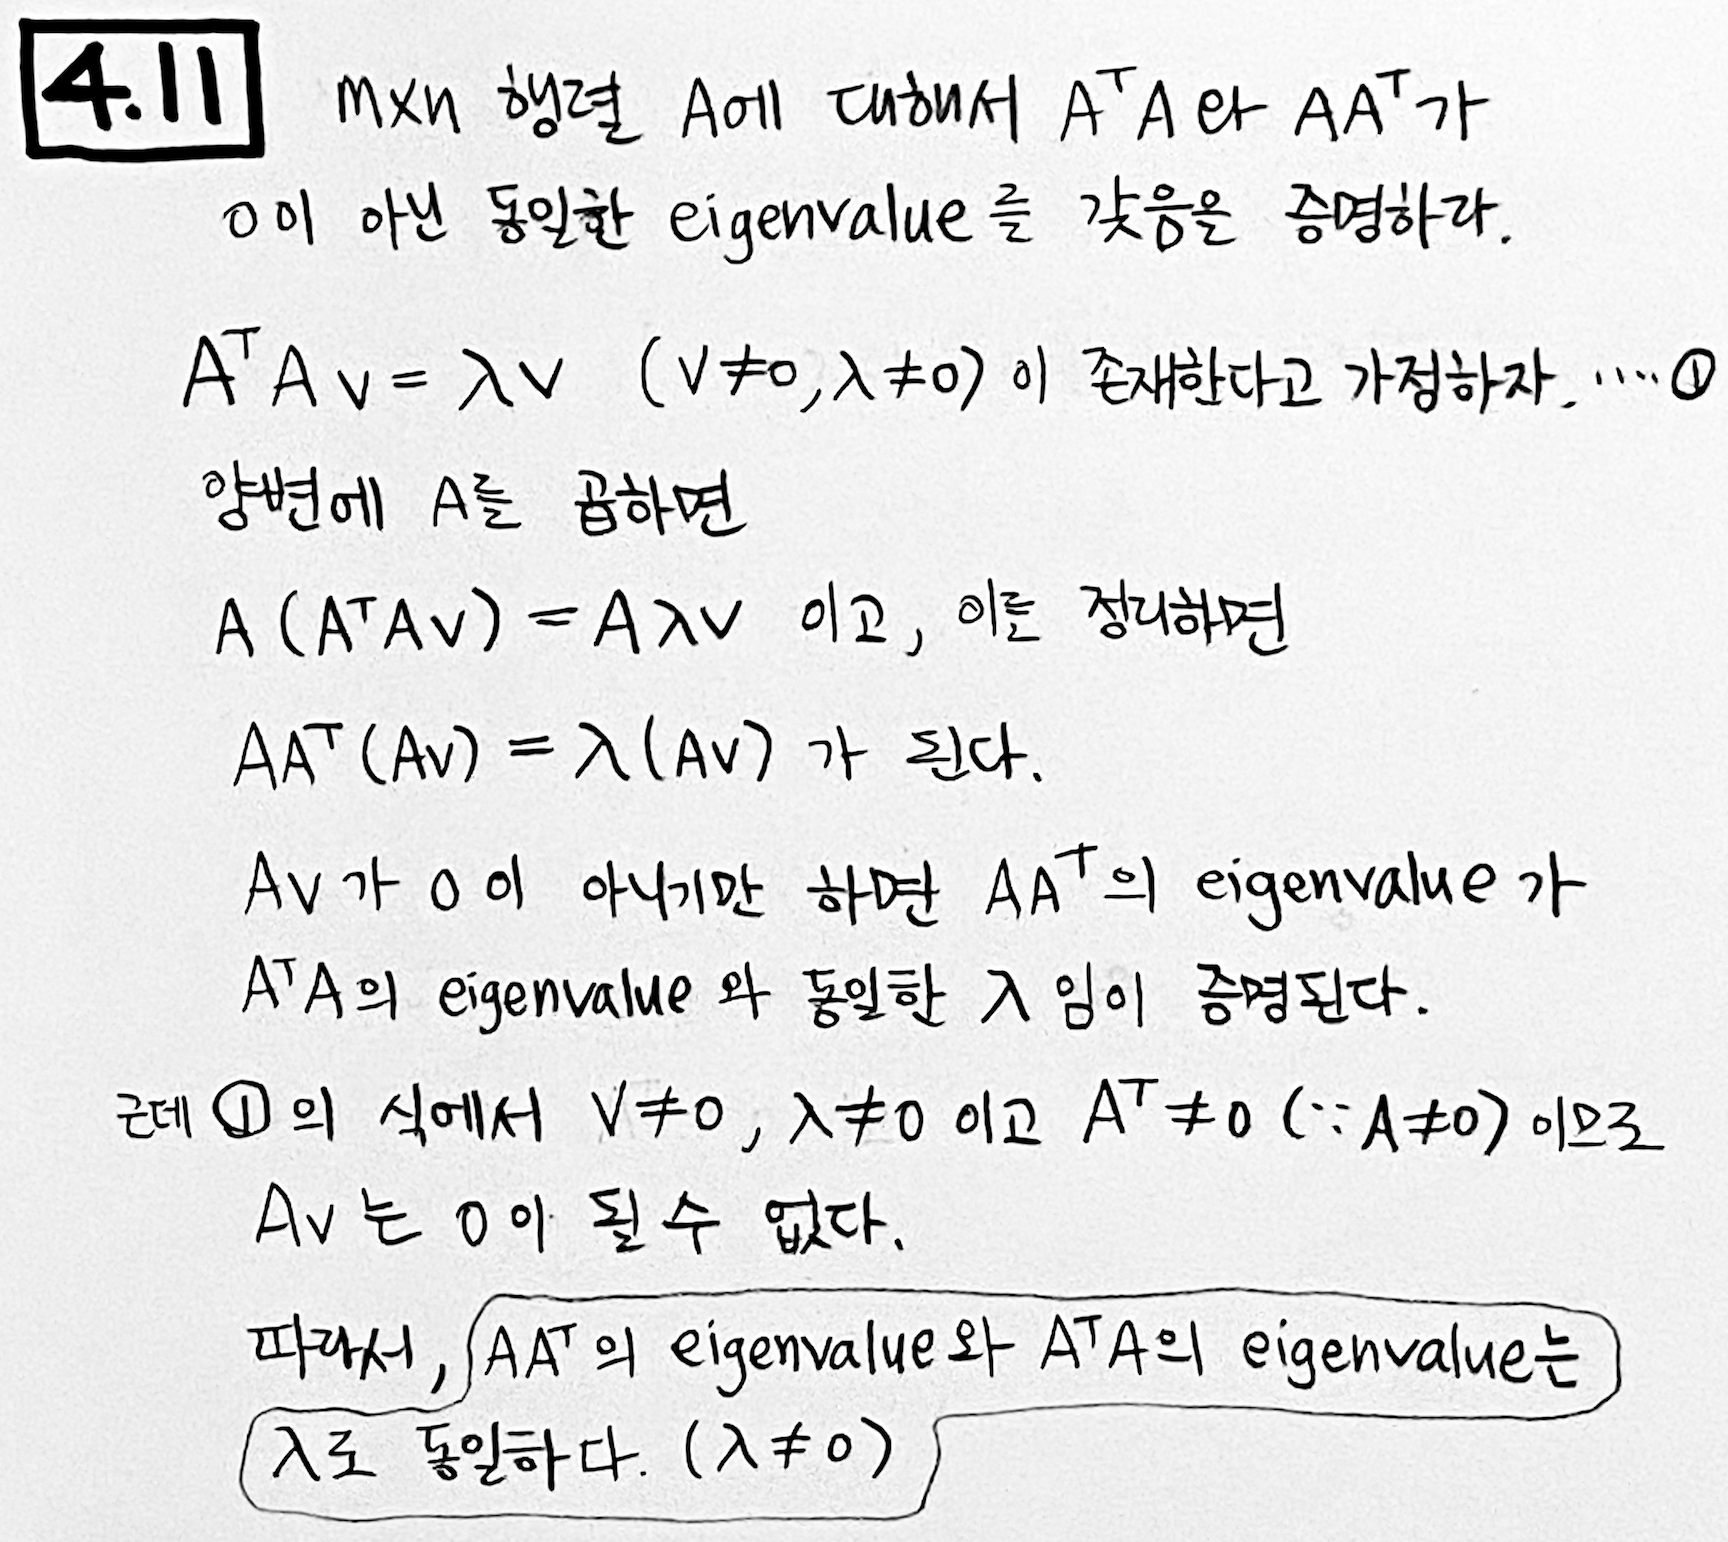 4.11 m×n 행렬 A에 대해서 AᵀA 와 AAᵀ가
0이 아닌 동일한 eigenvalue를 갖음을 증명하라.
AᵀAv = λv (v≠0, λ≠0)이 존재한다고 가정하자. ····①
양변에 A를 곱하면
A(AᵀAv) = Aλv 이고, 이를 정리하면
AAᵀ(Av) = λ(Av) 가 된다.
Av가 0이 아니기만 하면 AAᵀ의 eigenvalue가
AᵀA의 eigenvalue와 동일한 λ임이 증명된다.
근데 ①의 식에서 v≠0, λ≠0 이고 Aᵀ≠0 (∵A≠0) 이므로
Av는 0이 될 수 없다.
따라서, AAᵀ의 eigenvalue와 AᵀA의 eigenvalue는
λ로 동일하다. (λ≠0)